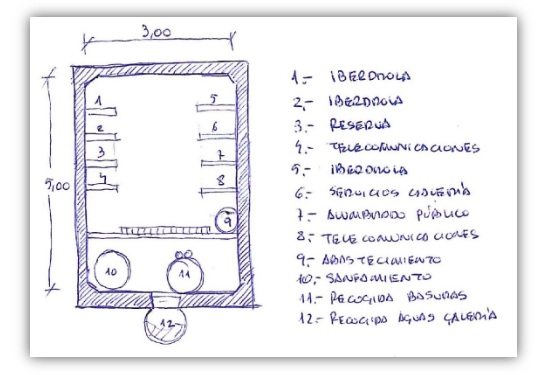 3,00
5,00
1
2
3
4
5
6
7
8
9
10
11
12
1.- IBERDROLA
2.- IBERDROLA
3.- RESERVA
4.- TELECOMUNICACIONES
5.- IBERDROLA
6.- SERVICIOS GALERÍA
7.- ALUMBRADO PÚBLICO
8.- TELECOMUNICACIONES
9.- ABASTECIMIENTO
10.- SANEAMIENTO
11.- RECOGIDA BASURAS
12.- RECOGIDA AGUAS GALERÍA